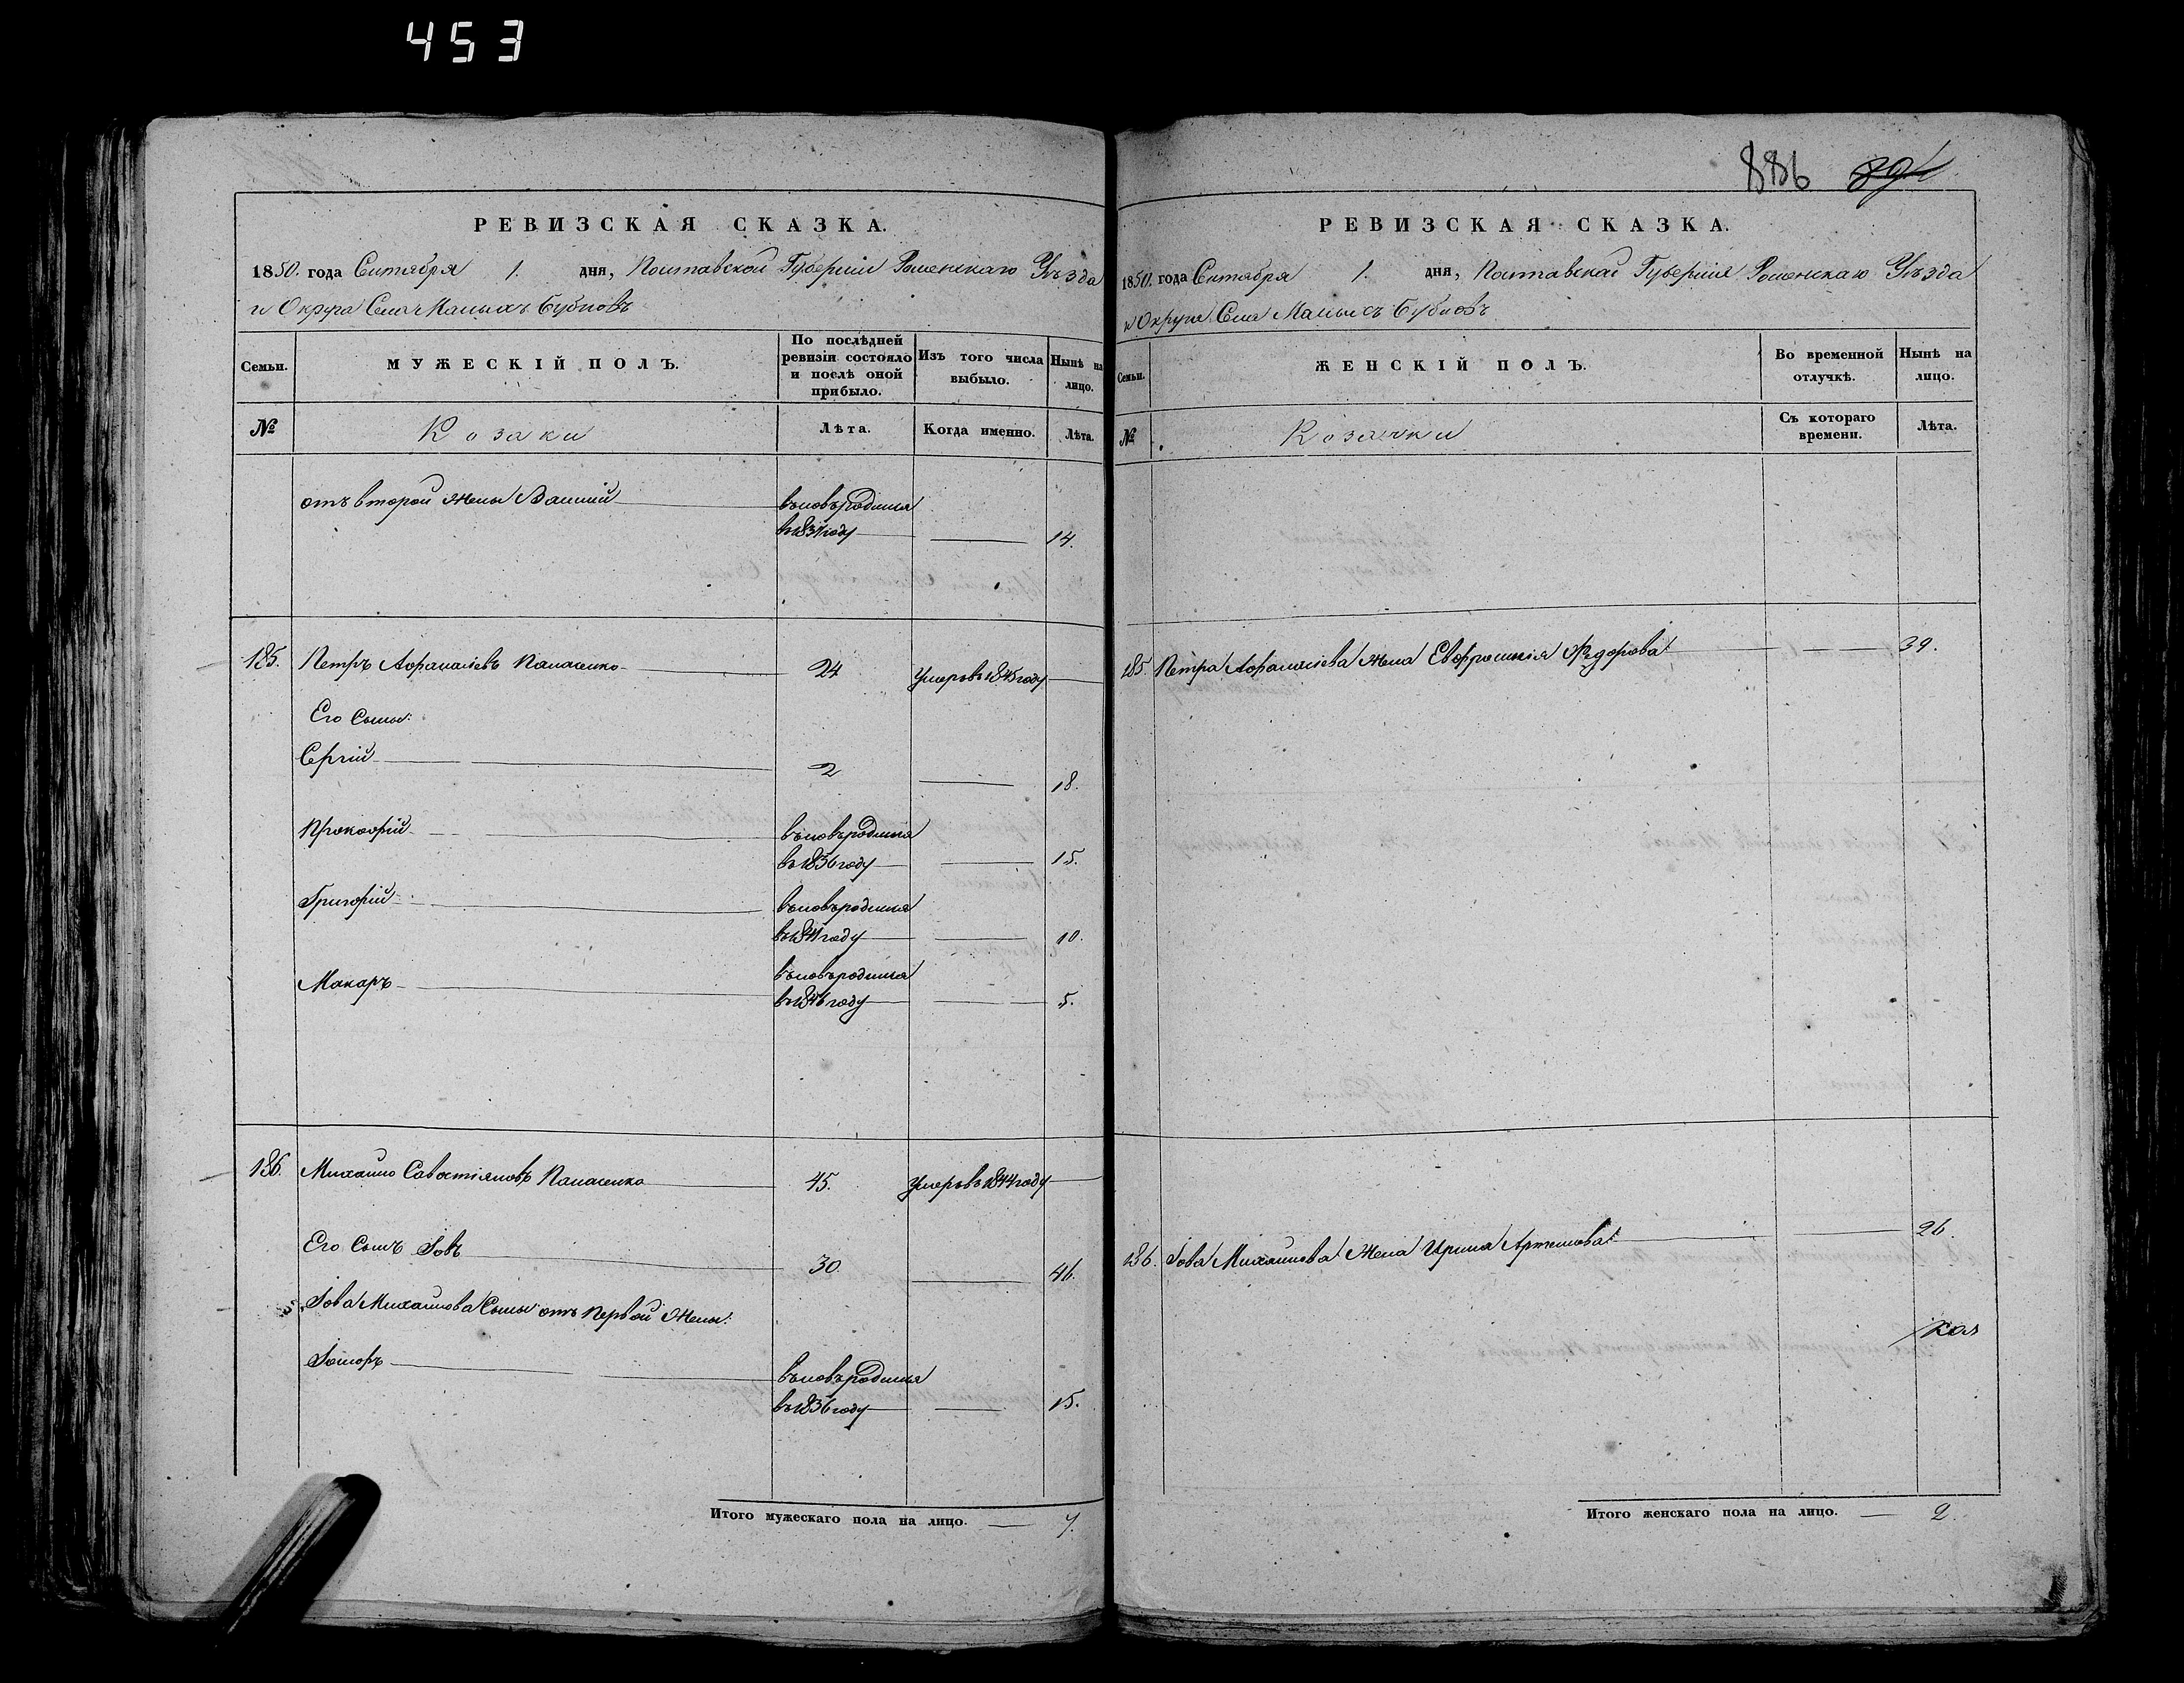 453
886 894
РЕВИЗСКАЯ СКАЗКА.
1850. года Сентября 1. дня, Полтавской Губерніи Роменскаго Уѣзда
и Округа Села Малыхъ Бубновъ
Семьи. МУЖЕСКІЙ ПОЛЪ. По послѣдней ревизіи состояло и послѣ оной прибыло. Изъ того числа выбыло. Нынѣ на лицо.
№ Козаки Лѣта. Когда именно. Лѣта.
отъ второй жены Василій вновь родился
въ 1837 году 14.
185. Петръ Афанасіевъ Панасенко 24 Умеръ въ 1845 году
Его Сыны:
Сергій 2 18.
Прокофій вновь родился
въ 1836 году 15.
Григорій вновь родился
въ 1841 году 10.
Макаръ вновь родился
въ 1846 году 5.
186. Михайло Савостіяновъ Панасенко 45. Умеръ въ 1844 году
Его Сынъ Іовъ 30. 46.
Іова Михайлова Сыны отъ Первой Жены:
вновь родился
въ 1836 году 15.
Итого мужескаго пола на лицо. 7.
РЕВИЗСКАЯ СКАЗКА.
1850. года Сентября 1. дня, Полтавской Губерніи Роменскаго Уѣзда
и Округа Села Малыхъ Бубновъ
Семьи. ЖЕНСКІЙ ПОЛЪ. Во временной отлучкѣ. Нынѣ на лицо.
№ Козачки Съ котораго времени. Лѣта.
185. Петра Афанасіева Жена Евфросинія Федорова 39.
186. Іова Михайлова Жена Ирина Артемова 26.
Итого женскаго пола на лицо. 2.